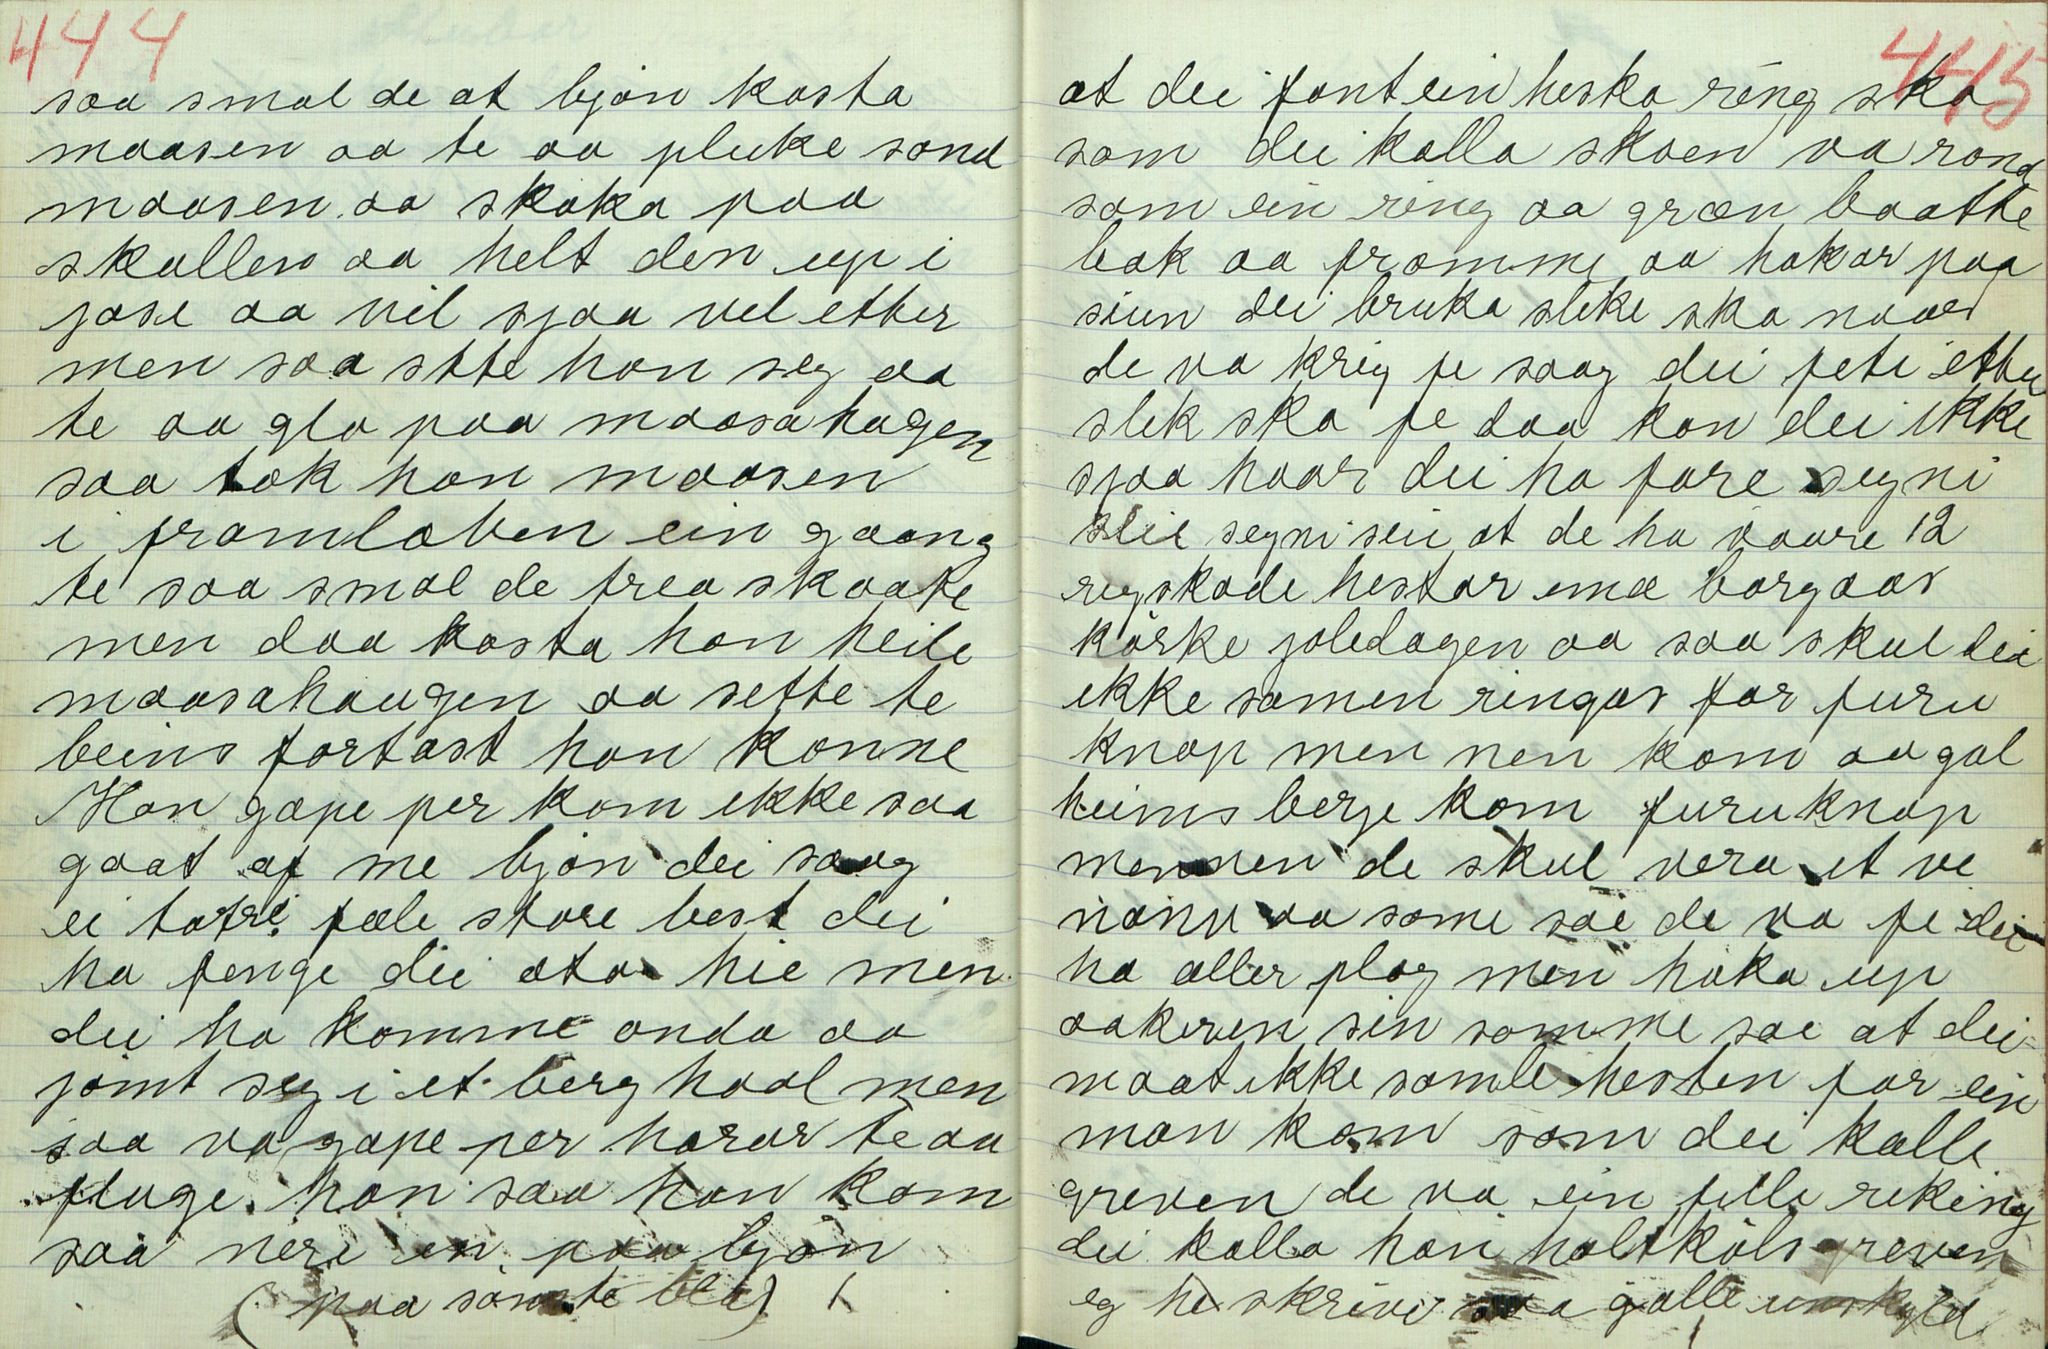 444
saa smal de at bjøn kasta
maasen aa te aa pluke sand
maasen aa skaka paa
skallen aa helt den up i
jose aa vil sjaa vel etter
men saa stte han seg aa
te aa glo paa maasahagen
saa tok han maasen
i framlaben ein gaang
te saa smal de trea skaake
men daa kasta han heile
maasahaugen aa sette te
beins fortast han konne
Han gape per kom ikke saa
gaat af me bjøn dei saag
ei tatre fæle store best dei
ha fenge dei ata hie men
dei ha komme onda aa
jømt seg i et berg haal men
saa va gape per harar te aa
fluge han saa han kom
saa nere en paa bjøn
(paa sømste bla)
445
at dei fant ein heska ring sko
som dei kalla skoen va rond
som ein ring aa græn baatte
bak aa framme aa hakar paa
siun dei bruka slike sko naar
de va krig fe saag dei feti etter
slik sko fe daa kan dei ikke
sjaa haar dei ha fare segni
slie segni seii at de ha vaare 12
regskode hestar unæ borgaas
kørke joledagen aa saa skul dei
ikke samen ringas før furu
knap men nen kom aa gal
heims berge kom furuknap
mennen de skul vera et ve
nanv aa some sae de va fe dei
ha aller plog men haka up
aakeren sin somme sae at dei
maat ikke samle hesten før ein
man kom som dei kalle
greven de va ein fille reking
dei kalla han holtkølsgreven
eg he skrive saa galle unskyld